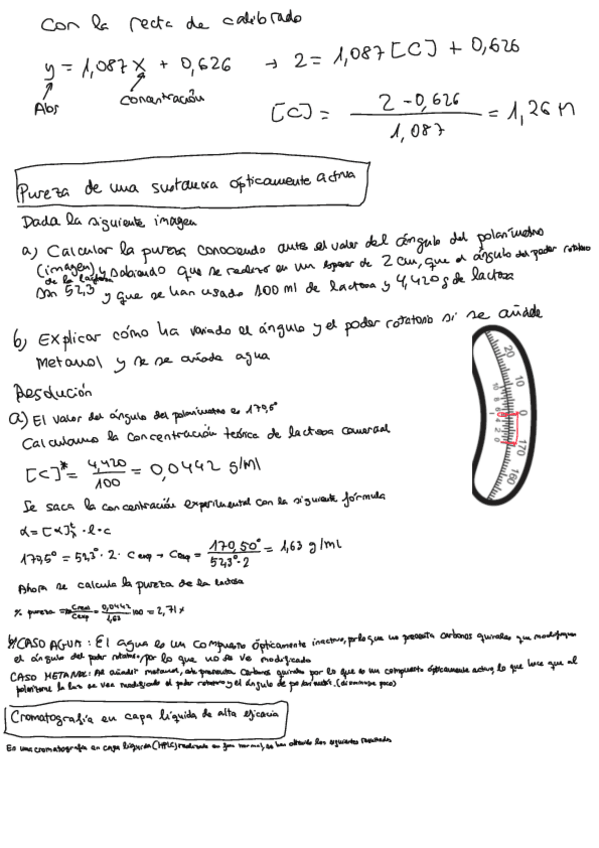 Con la recta de calibrado
y = 1,087 X + 0,626 → 2 = 1,087 [C] + 0,626
Abs Concentración
[C] = 2 - 0,626 / 1,087 = 1,26 M
Pureza de una sustancia ópticamente activa
Dada la siguiente imagen
a) Calcular la pureza conociendo antes el valor del ángulo del polarímetro
(imagen) y sabiendo que se realizo en un espesor de 2 cm, que el ángulo del poder rotatorio
de la lactosa
son 52,3 y que se han usado 100 ml de lactosa y 4,420 g de lactosa
b) Explicar cómo ha variado el ángulo y el poder rotatorio si se añade
Metanol y si se añade agua
20
10
0
170
160
10
8
6
4
2
0
Resolución
a) El valor del ángulo del polarímetro es 170,5°
Calculamos la concentración teórica de lactosa comercial
[C]* = 4,420 / 100 = 0,0442 g/ml
Se saca la concentración experimental con la siguiente fórmula
α = [α] · l · c
170,5° = 52,3° · 2 · Cexp → Cexp = 170,50° / 52,3° · 2 = 1,63 g/ml
Ahora se calcula la pureza de la lactosa
% pureza = Creal / Cexp = 0,0442 / 1,63 100 = 2,71 %
b) CASO AGUA: El agua es un compuesto ópticamente inactivo, por lo que no presenta carbonos quirales que modifiquen
el ángulo del poder rotatorio, por lo que no se ve modificado
CASO METANOL: Al añadir metanol, presenta carbonos quirales por lo que es un compuesto ópticamente activo, lo que hace que al
polarizar la luz se vea modificado el poder rotatorio y el ángulo de polarímetro, (disminuye poco)
Cromatografía en capa líquida de alta eficacia
En una cromatografía en capa líquida (HPLC) realizada en fase normal, se han obtenido los siguientes resultados